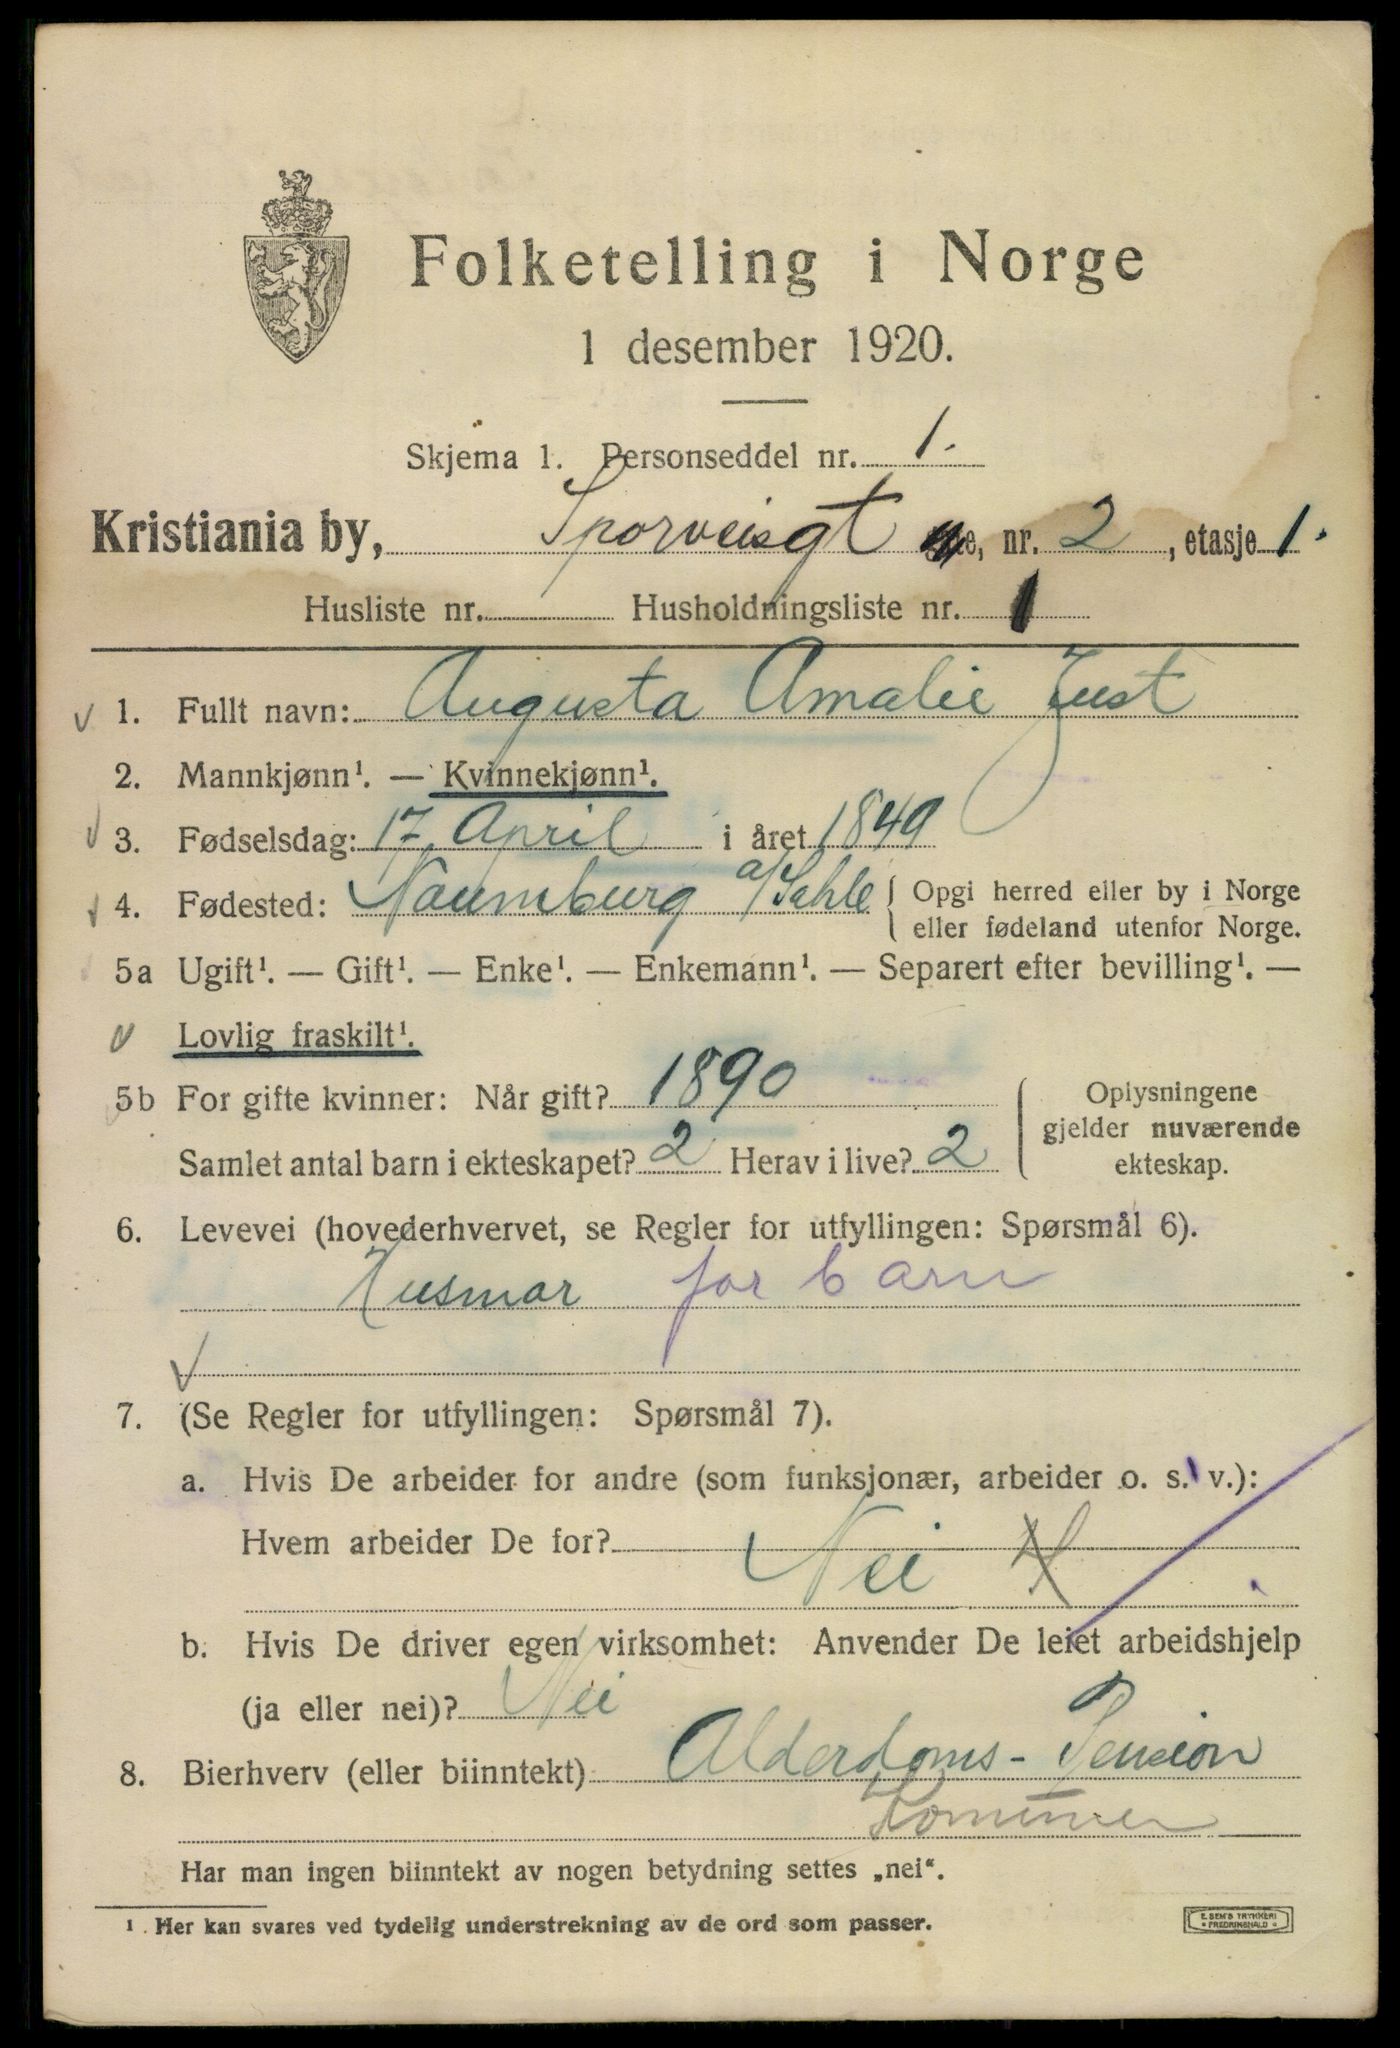 Folketelling i Norge
1 desember 1920.
Skjema 1. Personseddel nr. 1.
Kristiania by, Sporveisgt gte, nr. 2, etasje 1.
Husliste nr. Husholdningsliste nr. 1
1. Fullt navn: Augusta Amalie Just
2. Mannkjønn¹. — Kvinnekjønn¹.
3. Fødselsdag: 17 April i året 1849
4. Fødested: Naumburg a/Sahle { Opgi herred eller by i Norge
eller fødeland utenfor Norge.
5a Ugift¹. — Gift¹. — Enke¹. — Enkemann¹. — Separert efter bevilling¹. —
Lovlig fraskilt¹.
5b For gifte kvinner: Når gift? 1890
Samlet antal barn i ekteskapet? 2 Herav i live? 2
Oplysningene
gjelder nuværende
ekteskap.
6. Levevei (hovederhvervet, se Regler for utfyllingen: Spørsmål 6).
Husmor for barn
7. (Se Regler for utfyllingen: Spørsmål 7).
a. Hvis De arbeider for andre (som funksjonær, arbeider o. s. v.):
Hvem arbeider De for?
Nei
b. Hvis De driver egen virksomhet: Anvender De leiet arbeidshjelp
(ja eller nei)? Nei
8. Bierhverv (eller biinntekt) Alderdoms-Pension
Har man ingen biinntekt av nogen betydning settes „nei“.
¹ Her kan svares ved tydelig understrekning av de ord som passer.
E. SEM'S TRYKKERI
* FREDRIKSHALD *